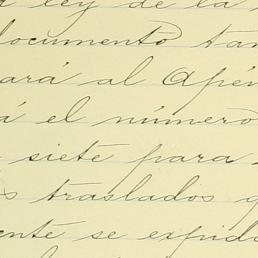 ley de la
documento tan
ará al Apén
á el número
siete para
s traslados q
ente se expida